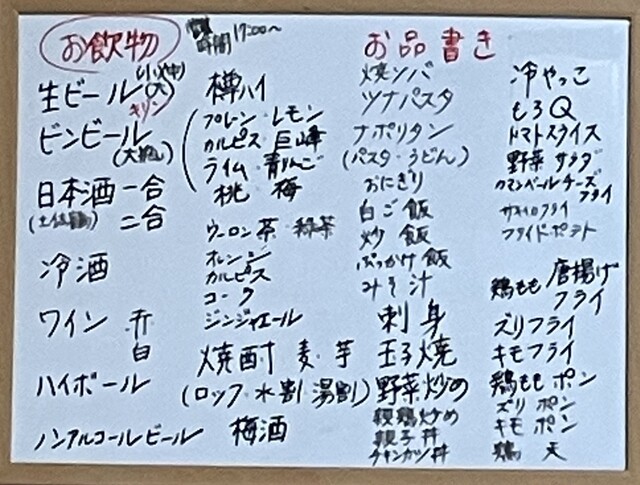 お飲物
営業時間 17:00〜
生ビール (小)(中)(大)
キリン
ビンビール
(大瓶)
日本酒 一合
(土佐鶴) 二合
冷酒
ワイン 赤
白
ハイボール
ノンアルコールビール
樽ハイ
プレーン・レモン
カルピス・巨峰
ライム・青りんご
桃・梅
ウーロン茶・緑茶
オレンジ
カルピス
コーク
ジンジャエール
焼酎 麦・芋
(ロック・水割・湯割)
梅酒
お品書き
焼ソバ
ツナパスタ
ナポリタン
(パスタ・うどん)
おにぎり
白ご飯
炒飯
ぶっかけ飯
みそ汁
刺身
玉子焼
野菜炒め
親鶏炒め
親子丼
チキンカツ丼
冷やっこ
もろQ
トマトスライス
野菜サラダ
カマンベールチーズ
フライ
フライドポテト
鶏もも 唐揚げ
フライ
ズリフライ
キモフライ
鶏もも ポン
ズリ ポン
キモ ポン
鶏 天